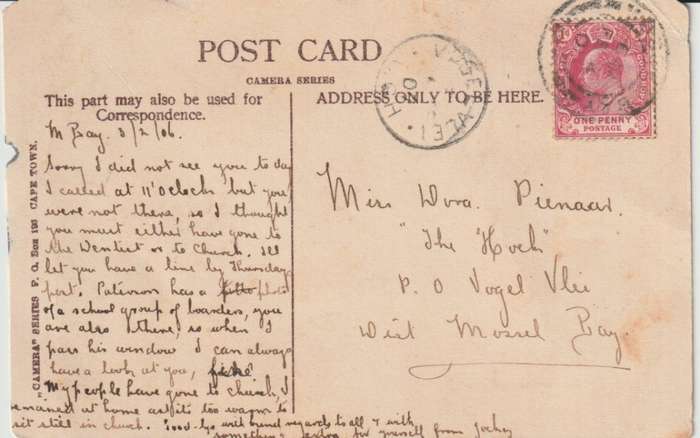 POST CARD
CAMERA SERIES
This part may also be used for
Correspondence.
ADDRESS ONLY TO BE HERE.
"CAMERA" SERIES P. O. Box 196 CAPE TOWN.
ONE PENNY
POSTAGE
VOGELVLEI
M Bay. 3/2/06.
Sorry I did not see you to day
I called at 11 O'Clock but you
were not there, so I thought
you must either have gone to
the Dentist or to Church. I'll
let you have a line by Thursday
post. Paterson has a photo
of a school group of boarders, you
are also there, so when I
pass his window I can always
have a look at you,
My people have gone to church, I
remained at home as it is too warm to
sit still in church. Good-bye with kind regards to all & with
something extra for yourself from Jockey
Miss Dora. Pienaar.
"The Hoek"
P. O Vogel Vlei
Dist Mossel Bay.